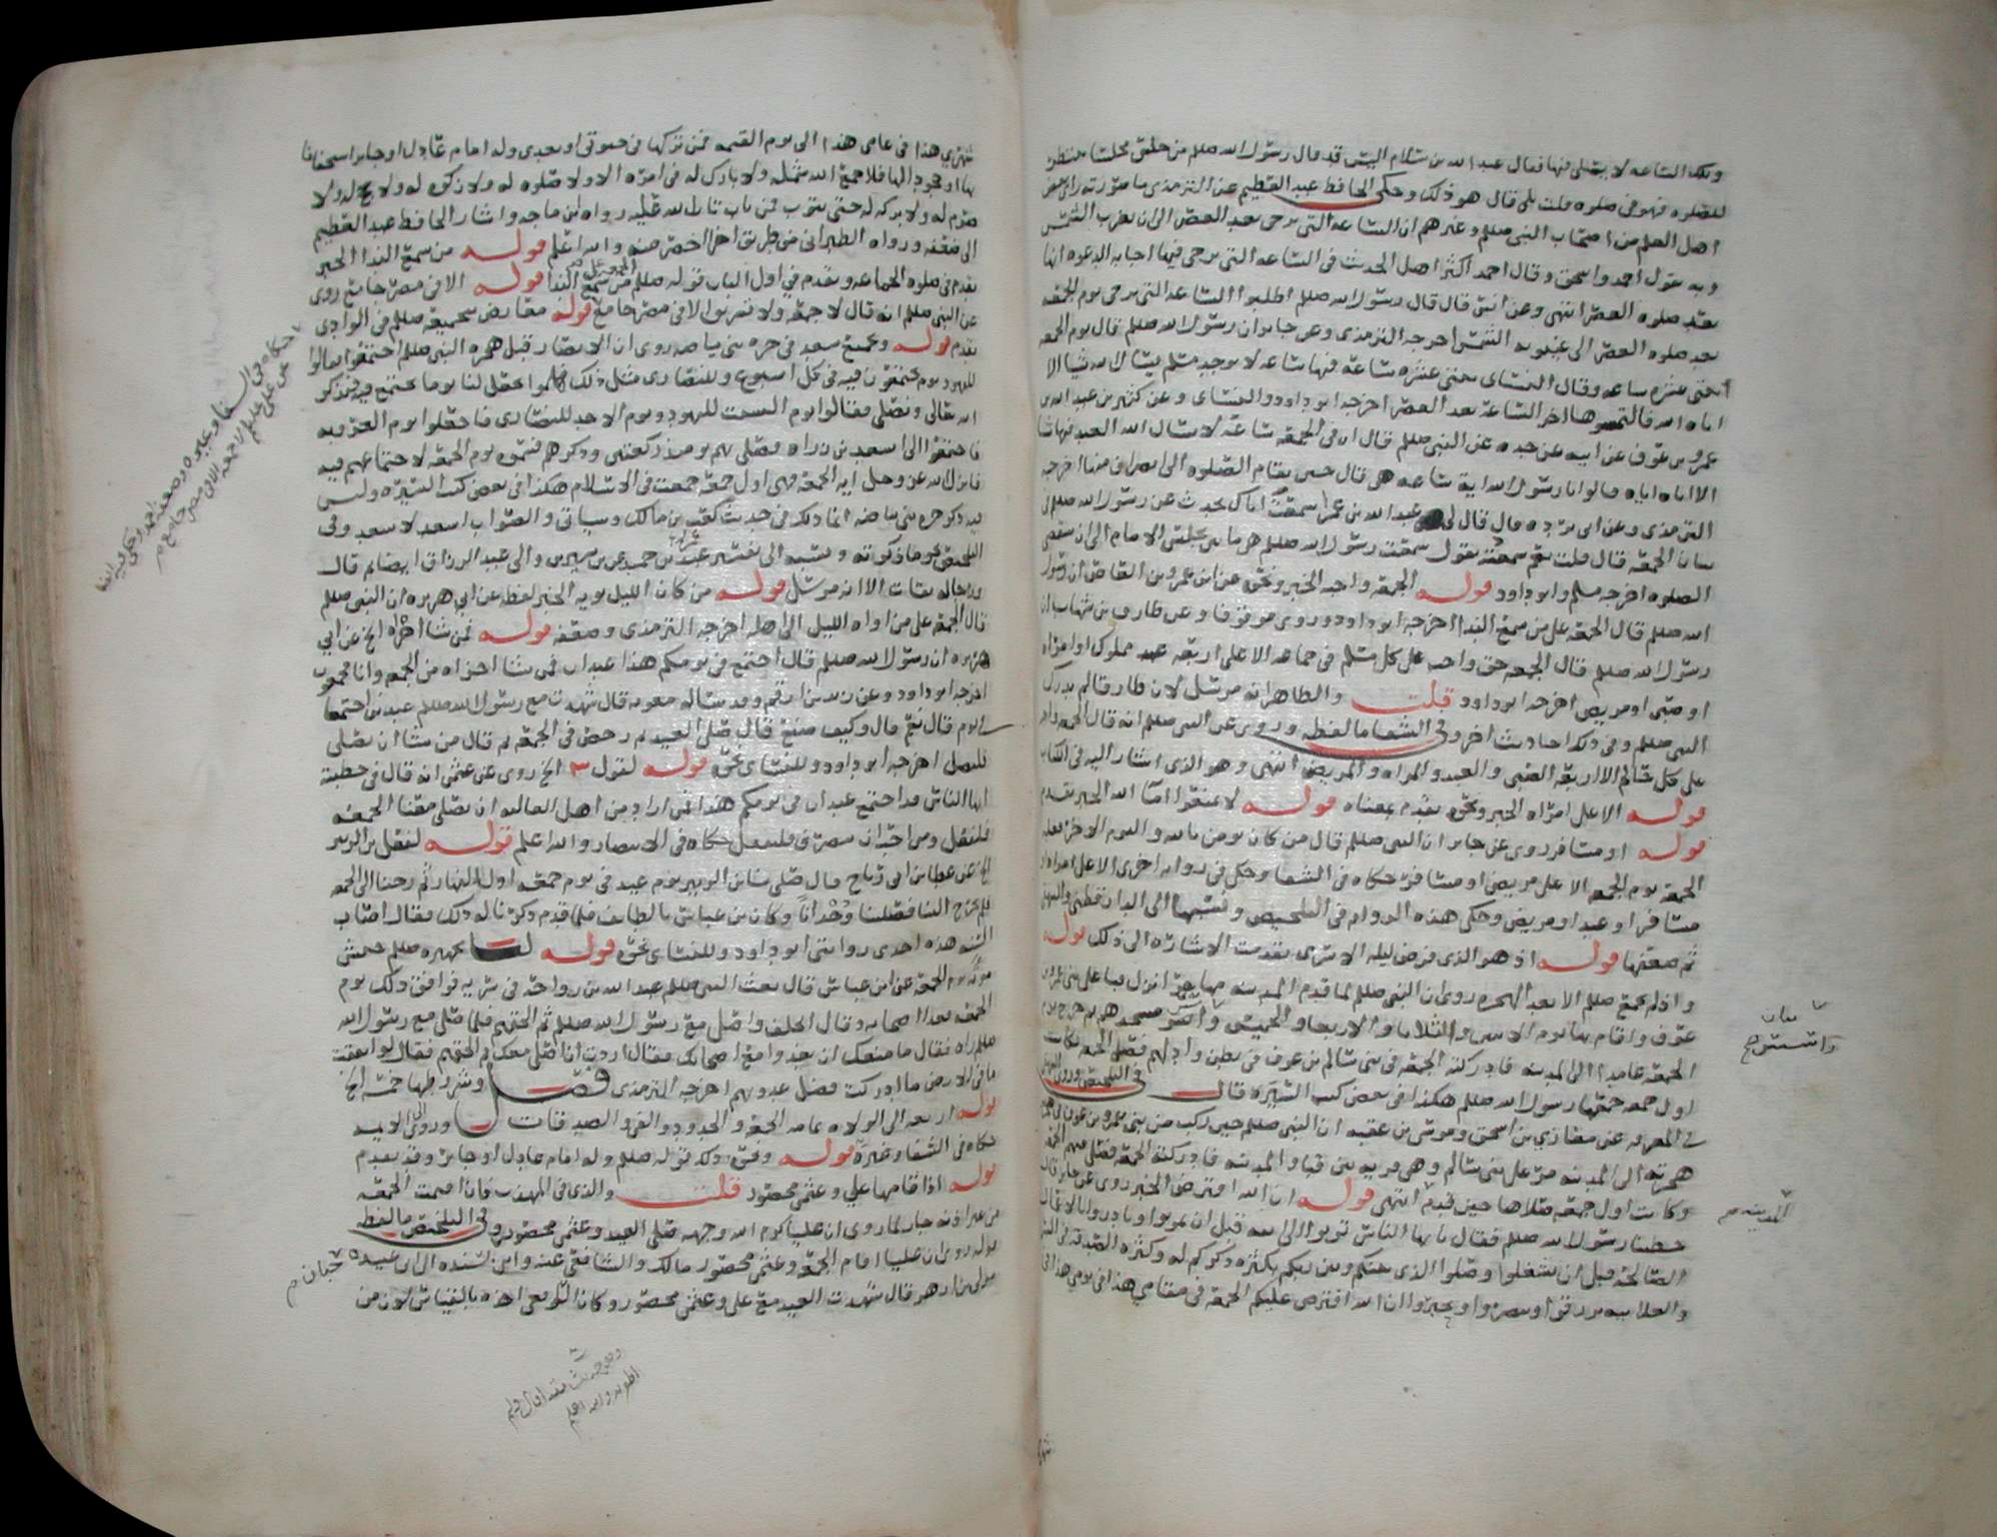 وتلك الساعه لا يصلى فيها فقال عبد الله بن سلام اليس قد قال رسول الله صلعم من جلس مجلسا ينتظر
الصلوه فهو في صلوه قلت بلى قال هو ذلك وحكى الحافظ عبد العظيم عن الترمذي ما صورته راى بعض
اهل العلم من اصحاب النبي صلعم وغيرهم ان الساعه التي ترجى بعد العصر الى ان تغرب الشمس
وبه يقول احمد واسحق وقال احمد اكثر اهل الحديث في الساعه التي ترجى فيها اجابه الدعوه انها
بعد صلوه العصر انتهى وعن انس قال قال رسول الله صلعم اطلبوا الساعه التي ترجى يوم الجمعه
بعد صلوه العصر الى غيبوبه الشمس اخرجه الترمذي وعن جابر ان رسول الله صلعم قال يوم الجمعه
ثنتى عشره ساعه وقال النسائي ثنتى عشره ساعه فيها ساعه لا يوجد مسلم يسال الله شيا الا
اتاه الله فالتمسوها اخر الساعه بعد العصر اخرجه ابو داود والنسائي وعن كثير بن عبد الله بن
عمرو بن عوف عن ابيه عن جده عن النبي صلعم قال ان في الجمعه ساعه لا يسال الله العبد فيها شيا
الا اتاه اياه قالوا يا رسول الله ايه ساعه هي قال حين تقام الصلوه الى انصراف منها اخرجه
الترمذي وعن ابي برده قال قال لي عبد الله بن عمر اسمعت اباك يحدث عن رسول الله صلعم في
شان الجمعه قال قلت نعم سمعته يقول سمعت رسول الله صلعم هي ما بين يجلس الامام الى ان تقضى
الصلوه اخرجه مسلم وابو داود قوله الجمعه واجبه الخبر ونحوه عن ابن عمرو بن العاص ان رسول
الله صلعم قال الجمعه على من سمع الندا اخرجه ابو داود وروى موقوفا وعن طارق بن شهاب ان
رسول الله صلعم قال الجمعه حق واجب على كل مسلم في جماعه الا على اربعه عبد مملوك او امراه
او صبي او مريض اخرجه ابو داود قلت والظاهر انه مرسل لان طارقا لم يدرك
النبي صلعم وفي ذلك احاديث اخر وفي الشفا ما لفظه وروى عن النبي صلعم انه قال الجمعه واجبه
على كل حالم الا اربعه الصبي والعبد والمراه والمريض انتهى وهو الذي اشار اليه في الكتاب
قوله الا على امراه الخبر ونحوه تقدم معناه قوله لا تمنعوا اماء الله الخبر تقدم
قوله او مسافر روى عن جابر ان النبي صلعم قال من كان يومن بالله واليوم الاخر فعليه
الجمعه يوم الجمعه الا على مريض او مسافر حكاه في الشفا وحكى في روايه اخرى الا على امراه او
مسافر او عبد او مريض وحكى هذه الروايه في التلخيص ونسبها الى الدارقطني والبيهقي
ثم ضعفها قوله اذ هو الذي فرض ليله الاسرى تقدمت الاشاره الى ذلك قوله
واذ لم يجمع صلعم الا بعد الهجره روى ان النبي صلعم لما قدم المدينه مهاجرا نزل قبا على بني عمرو بن
عوف واقام بها يوم الاثنين والثلاثا والاربعا والخميس واسس مسجدهم ثم خرج يوم
الجمعه عامدا الى المدينه فادركته الجمعه في بني سالم بن عوف في بطن واد لهم فصلى الجمعه وكانت
اول جمعه جمعها رسول الله صلعم هكذا في بعض كتب السيره قال في التلخيص وروى البيهقي
في المعرفه عن مغازي بن اسحق وموسى بن عقبه ان النبي صلعم حين ركب من بني عمرو بن عوف في
هجرته الى المدينه مر على بني سالم وهي قريه بين قبا والمدينه فادركته الجمعه فصلى بهم الجمعه
وكانت اول جمعه صلاها حين قدم انتهى قوله ان الله افترض الخبر روى عن جابر قال
خطبنا رسول الله صلعم فقال يايها الناس توبوا الى الله قبل ان تموتوا وبادروا بالاعمال
الصالحه قبل ان تشغلوا وصلوا الذي بينكم وبين ربكم بكثره ذكركم له وكثره الصدقه في السر
والعلانيه ترزقوا وتنصروا وتجبروا ان الله افترض عليكم الجمعه في مقامي هذا في يومي هذا في
بيان
واسس م
المدينه م
شهري هذا في عامي هذا الى يوم القيمه فمن تركها في حيوتي او بعدي وله امام عادل او جاير استخفافا
بها او جحودا لها فلا جمع الله شمله ولا بارك له في امره الا ولا صلوه له ولا زكوه له ولا حج له ولا
صوم له ولا بركه له حتى يتوب فمن تاب تاب الله عليه رواه ابن ماجه واشار الحافظ عبد العظيم
الى ضعفه ورواه الطبراني من طريق اخرى اخصر منه والله اعلم قوله من سمع الندا الخبر
تقدم في صلوه الجماعه وتقدم في اول الباب قوله صلعم الجمعه على من سمع الندا قوله الا في مصر جامع روى
عن النبي صلعم انه قال لا جمعه ولا تشريق الا في مصر جامع قوله معارض بتجميعه صلعم في الوادي
تقدم قوله وتجميع سعد في حره بني بياضه روى ان الانصار قبل هجره النبي صلعم اجتمعوا فقالوا
لليهود يوم يجتمعون فيه في كل اسبوع وللنصارى مثل ذلك فهلموا نجعل لنا يوما نجتمع فيه فنذكر
الله تعالى ونصلي فقالوا يوم السبت لليهود ويوم الاحد للنصارى فاجعلوا يوم العروبه
فاجتمعوا الى اسعد بن زراره فصلى بهم يومئذ ركعتين وذكرهم فسموه يوم الجمعه لاجتماعهم فيه
فانزل الله عز وجل ايه الجمعه فهي اول جمعه جمعت في الاسلام هكذا في بعض كتب السيره وليس
فيه ذكر حره بني بياضه انما ذلك في حديث كعب بن مالك وسياتي والصواب اسعد لا سعد وفي
التلخيص نحو ما ذكرته ونسبه الى تفسير عبد بن حميد عن بن سيرين والى عبد الرزاق ايضا ثم قال
ورجاله ثقات الا انه مرسل قوله من كان الليل يويه الخبر لفظه عن ابي هريره ان النبي صلعم
قال الجمعه على من اواه الليل الى اهله اخرجه الترمذي وضعفه قوله فمن شا اجزاه الخ عن ابي
هريره ان رسول الله صلعم قال اجتمع في يومكم هذا عيدان فمن شا اجزاه من الجمعه وانا مجمعون
اخرجه ابو داود وعن زيد بن ارقم وقد ساله معويه قال شهدت مع رسول الله صلعم عيدين اجتمعا
في يوم قال نعم قال وكيف صنع قال صلى العيد ثم رخص في الجمعه ثم قال من شا ان يصلي
فليصل اخرجه ابو داود وللنسائي نحوه قوله لقول الخ روى عن عثمن انه قال في خطبته
ايها الناس قد اجتمع عيدان في يومكم هذا فمن اراد من اهل العاليه ان يصلي معنا الجمعه
فليفعل ومن احب ان ينصرف فليفعل حكاه في الانتصار والله اعلم قوله لفعل بن الزبير
الخ عن عطا بن ابي رباح قال صلى بنا بن الزبير يوم عيد في يوم جمعه اول النهار ثم رحنا الى الجمعه
فلم يخرج الينا فصلينا وحدانا وكان بن عباس بالطايف فلما قدم ذكرنا له ذلك فقال اصاب
السنه هذه احدى روايتى ابو داود وللنسائي نحوه قوله لتجهيزه صلعم جيش
موته يوم الجمعه عن ابن عباس قال بعث النبي صلعم عبد الله بن رواحه في سريه فوافق ذلك يوم
الجمعه فغدا اصحابه وقال اتخلف واصلي مع رسول الله صلعم ثم الحقهم فلما صلى مع رسول الله
صلعم راه فقال ما منعك ان تغدوا مع اصحابك فقال اردت ان اصلي معك ثم الحقهم فقال لو انفقت
ما في الارض ما ادركت فضل غدوتهم اخرجه الترمذي فصل وشروطها خمسه الخ
قوله اربعه الى الولاه عامه الجمعه والحدود والفي والصدقات
حكاه في الشفا وغيره قوله ونحو ذلك قوله صلعم وله امام عادل او جاير وقد تقدم
قوله اذا قامها علي وعثمن محصور قلت والذي في المهذب فان اقيمت الجمعه
من غير اذنه جاز لما روى ان عليا كرم الله وجهه صلى العيد وعثمن محصور وفي التلخيص ما لفظه
قوله روى ان عليا اقام الجمعه وعثمن محصور مالك والشافعي عنه وابن بسنده الى ابي عبيده
مولى بن ازهر قال شهدت العيد مع علي وعثمن محصور وكان الرافعي اخذه بالقياس لان من
حكاه في الشفا وغيره وضعفه احمد وحكى فيه ايضا
عن علي عليلم لا جمعه الا في مصر جامع م
حبان م